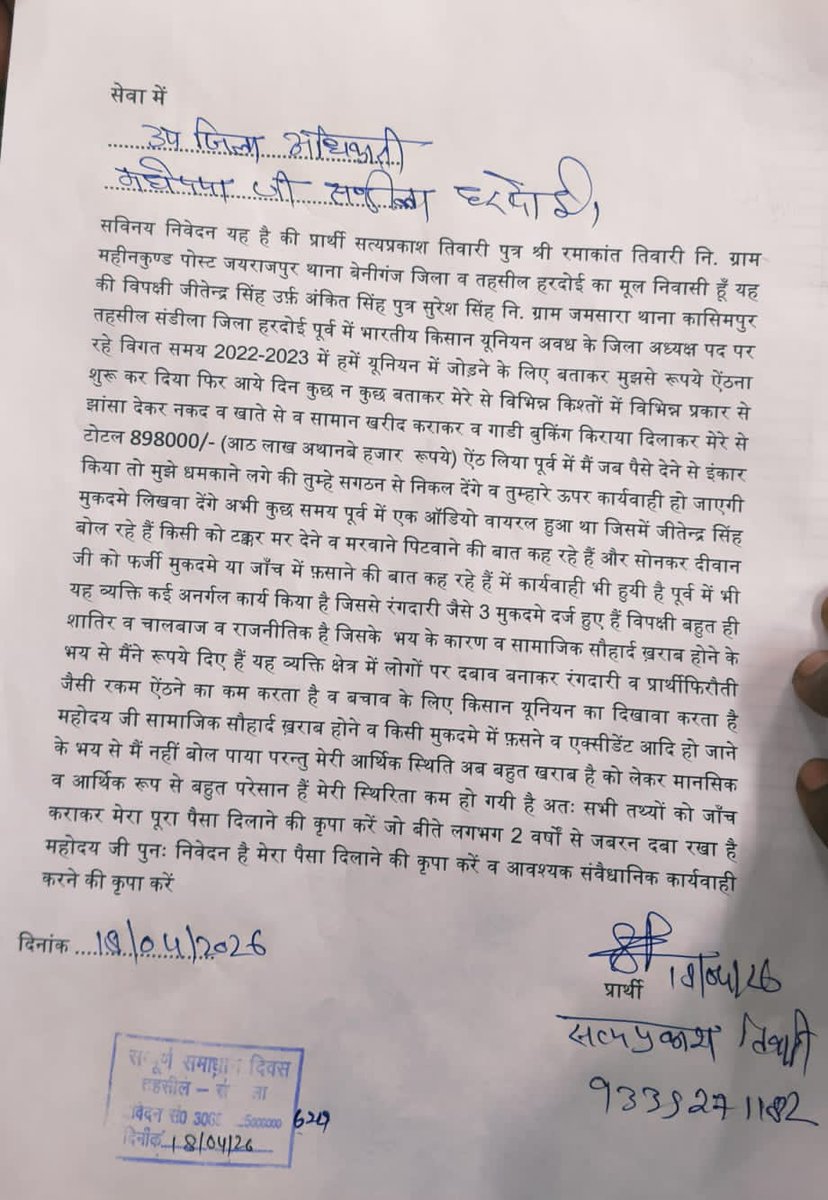 सेवा में
उप जिला अधिकारी
महोदय जी सण्डीला हरदोई,
सविनय निवेदन यह है की प्रार्थी सत्यप्रकाश तिवारी पुत्र श्री रमाकांत तिवारी नि. ग्राम
महीनकुण्ड पोस्ट जयराजपुर थाना बेनीगंज जिला व तहसील हरदोई का मूल निवासी हूँ यह
की विपक्षी जीतेन्द्र सिंह उर्फ़ अंकित सिंह पुत्र सुरेश सिंह नि. ग्राम जमसारा थाना कासिमपुर
तहसील संडीला जिला हरदोई पूर्व में भारतीय किसान यूनियन अवध के जिला अध्यक्ष पद पर
रहे विगत समय 2022-2023 में हमें यूनियन में जोड़ने के लिए बताकर मुझसे रूपये ऐंठना
शुरू कर दिया फिर आये दिन कुछ न कुछ बताकर मेरे से विभिन्न किश्तों में विभिन्न प्रकार से
झांसा देकर नकद व खाते से व सामान खरीद कराकर व गाडी बुकिंग किराया दिलाकर मेरे से
टोटल 898000/- (आठ लाख अथानबे हजार रूपये) ऐंठ लिया पूर्व में मैं जब पैसे देने से इंकार
किया तो मुझे धमकाने लगे की तुम्हे सगठन से निकल देंगे व तुम्हारे ऊपर कार्यवाही हो जाएगी
मुकदमे लिखवा देंगे अभी कुछ समय पूर्व में एक ऑडियो वायरल हुआ था जिसमें जीतेन्द्र सिंह
बोल रहे हैं किसी को टक्कर मर देने व मरवाने पिटवाने की बात कह रहे हैं और सोनकर दीवान
जी को फर्जी मुकदमे या जाँच में फ़साने की बात कह रहे हैं में कार्यवाही भी हुयी है पूर्व में भी
यह व्यक्ति कई अनर्गल कार्य किया है जिससे रंगदारी जैसे 3 मुकदमे दर्ज हुए हैं विपक्षी बहुत ही
शातिर व चालबाज व राजनीतिक है जिसके भय के कारण व सामाजिक सौहार्द ख़राब होने के
भय से मैंने रूपये दिए हैं यह व्यक्ति क्षेत्र में लोगों पर दबाव बनाकर रंगदारी व प्रार्थीफिरौती
जैसी रकम ऐंठने का कम करता है व बचाव के लिए किसान यूनियन का दिखावा करता है
महोदय जी सामाजिक सौहार्द ख़राब होने व किसी मुकदमे में फ़सने व एक्सीडेंट आदि हो जाने
के भय से मैं नहीं बोल पाया परन्तु मेरी आर्थिक स्थिति अब बहुत खराब है को लेकर मानसिक
व आर्थिक रूप से बहुत परेसान हैं मेरी स्थिरिता कम हो गयी है अतः सभी तथ्यों को जाँच
कराकर मेरा पूरा पैसा दिलाने की कृपा करें जो बीते लगभग 2 वर्षों से जबरन दबा रखा है
महोदय जी पुनः निवेदन है मेरा पैसा दिलाने की कृपा करें व आवश्यक संवैधानिक कार्यवाही
करने की कृपा करें
दिनांक 18/04/2026
18/04/26
प्रार्थी
सत्यप्रकाश तिवारी
सम्पूर्ण समाधान दिवस
तहसील –
629
दिनाँक 18/04/26